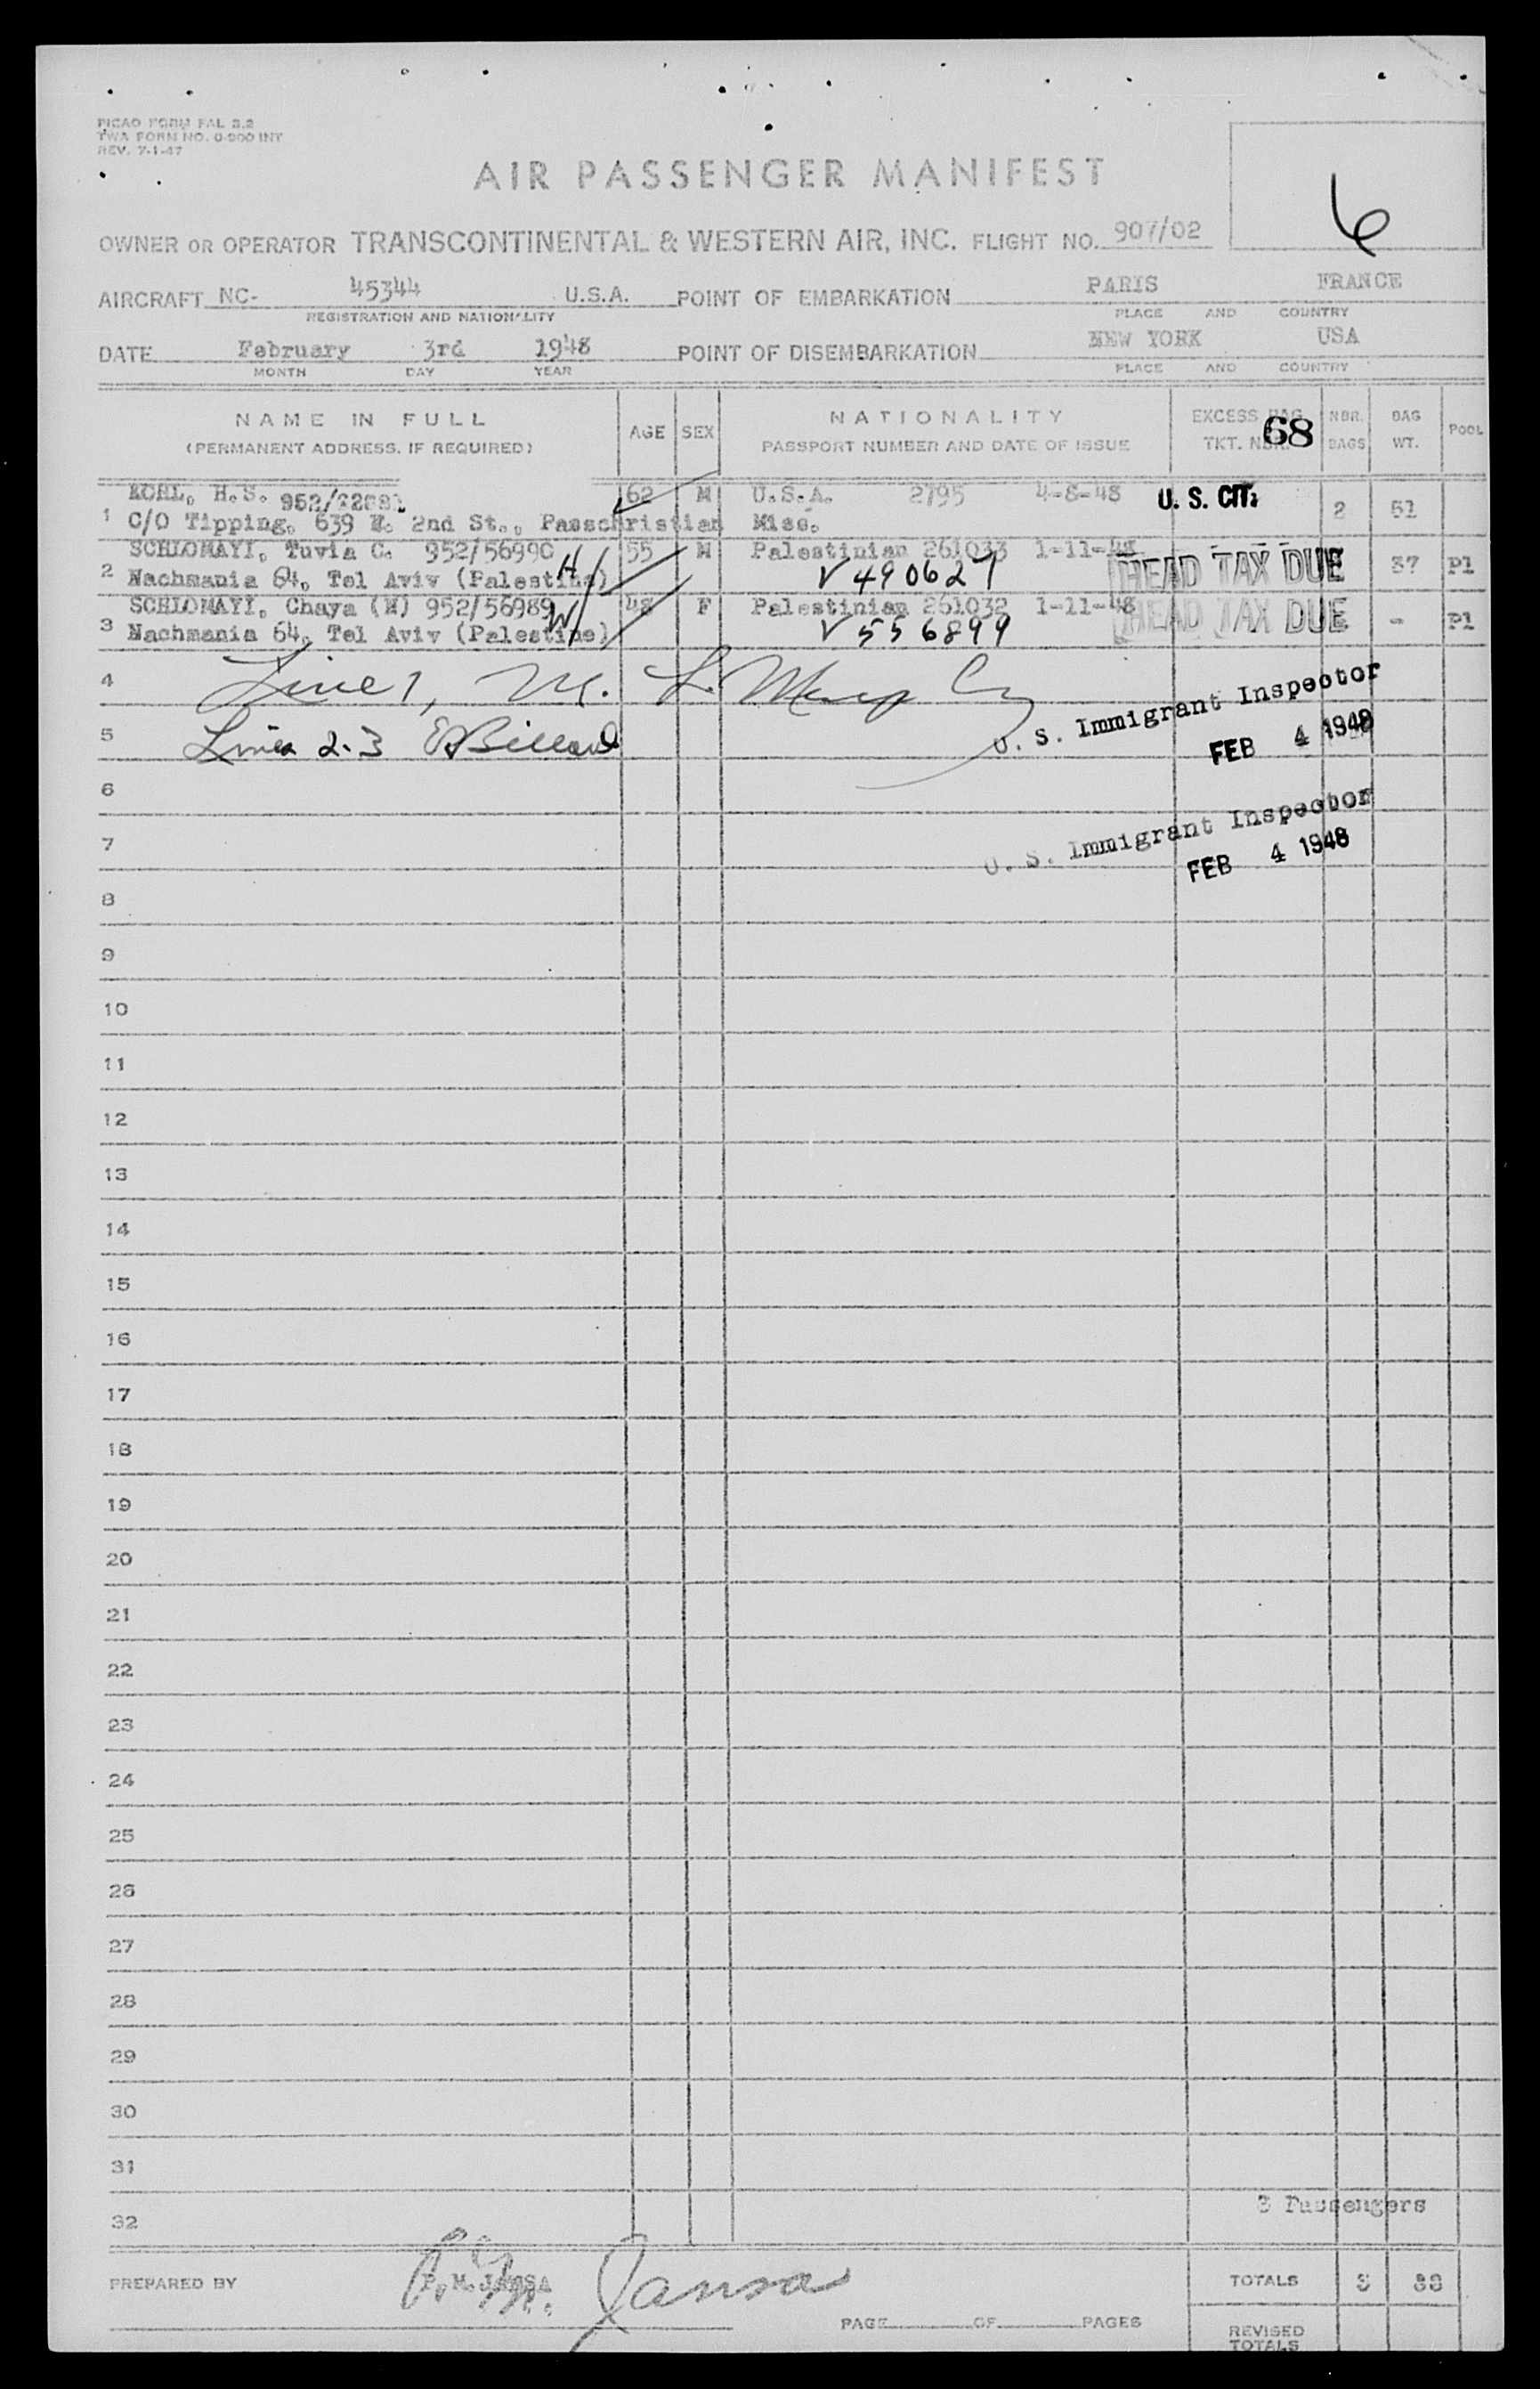 PICAO FORM FAL 2.2
TWA FORM NO. 0-900 INT
REV. 7-1-47
AIR PASSENGER MANIFEST
6
OWNER OR OPERATOR TRANSCONTINENTAL & WESTERN AIR, INC. FLIGHT NO. 907/02
AIRCRAFT NC- 45344 U.S.A. POINT OF EMBARKATION PARIS FRANCE
REGISTRATION AND NATIONALITY PLACE AND COUNTRY
DATE February 3rd 1948 POINT OF DISEMBARKATION NEW YORK USA
MONTH DAY YEAR PLACE AND COUNTRY
NAME IN FULL AGE SEX NATIONALITY EXCESS BAG NBR. BAG POOL
(PERMANENT ADDRESS, IF REQUIRED) PASSPORT NUMBER AND DATE OF ISSUE TKT. NBR. 68 BAGS WT.
H.S. 62 M U.S.A. 2795 4-8-48 U. S. CIT.
1 C/O Tipping, 639 E. 2nd St., Passchristian Miss. 2 51
SCHLOMAYI, Tuvia C. 952/56990 H 55 M Palestinian 261033 1-11-48 HEAD TAX DUE
2 Nachmania 64, Tel Aviv (Palestine) V 490627 37 Pl
SCHLOMAYI, Chaya (W) 952/56989 W 48 F Palestinian 261032 1-11-48 HEAD TAX DUE
3 Nachmania 64, Tel Aviv (Palestine) V 556899 - Pl
4 Line 1, M. L.
U. S. Immigrant Inspector
5 Lines 2-3
FEB 4 1948
6
U. S. Immigrant Inspector
7
FEB 4 1948
8
9
10
11
12
13
14
15
16
17
18
19
20
21
22
23
24
25
26
27
28
29
30
31
3 Passengers
32
PREPARED BY P. M. JANSA P. M. Jansa TOTALS 3 88
PAGE OF PAGES REVISED
TOTALS